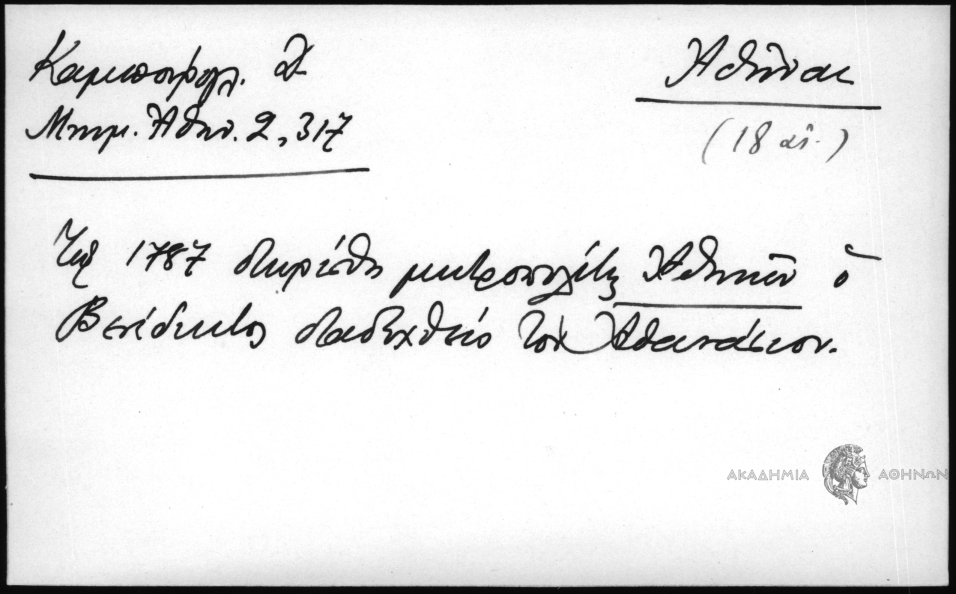 Καμπούρογλ. Δ
Μνημ. Ἀθην. 2, 317
Ἀθῆναι
(18 αἰ.)
Τῷ 1787 διωρίσθη μητροπολίτης Ἀθηνῶν ὁ
Βενέδικτος διαδεχθείς τὸν Ἀθανάσιον.
ΑΚΑΔΗΜΙΑ ΑΘΗΝΩΝ